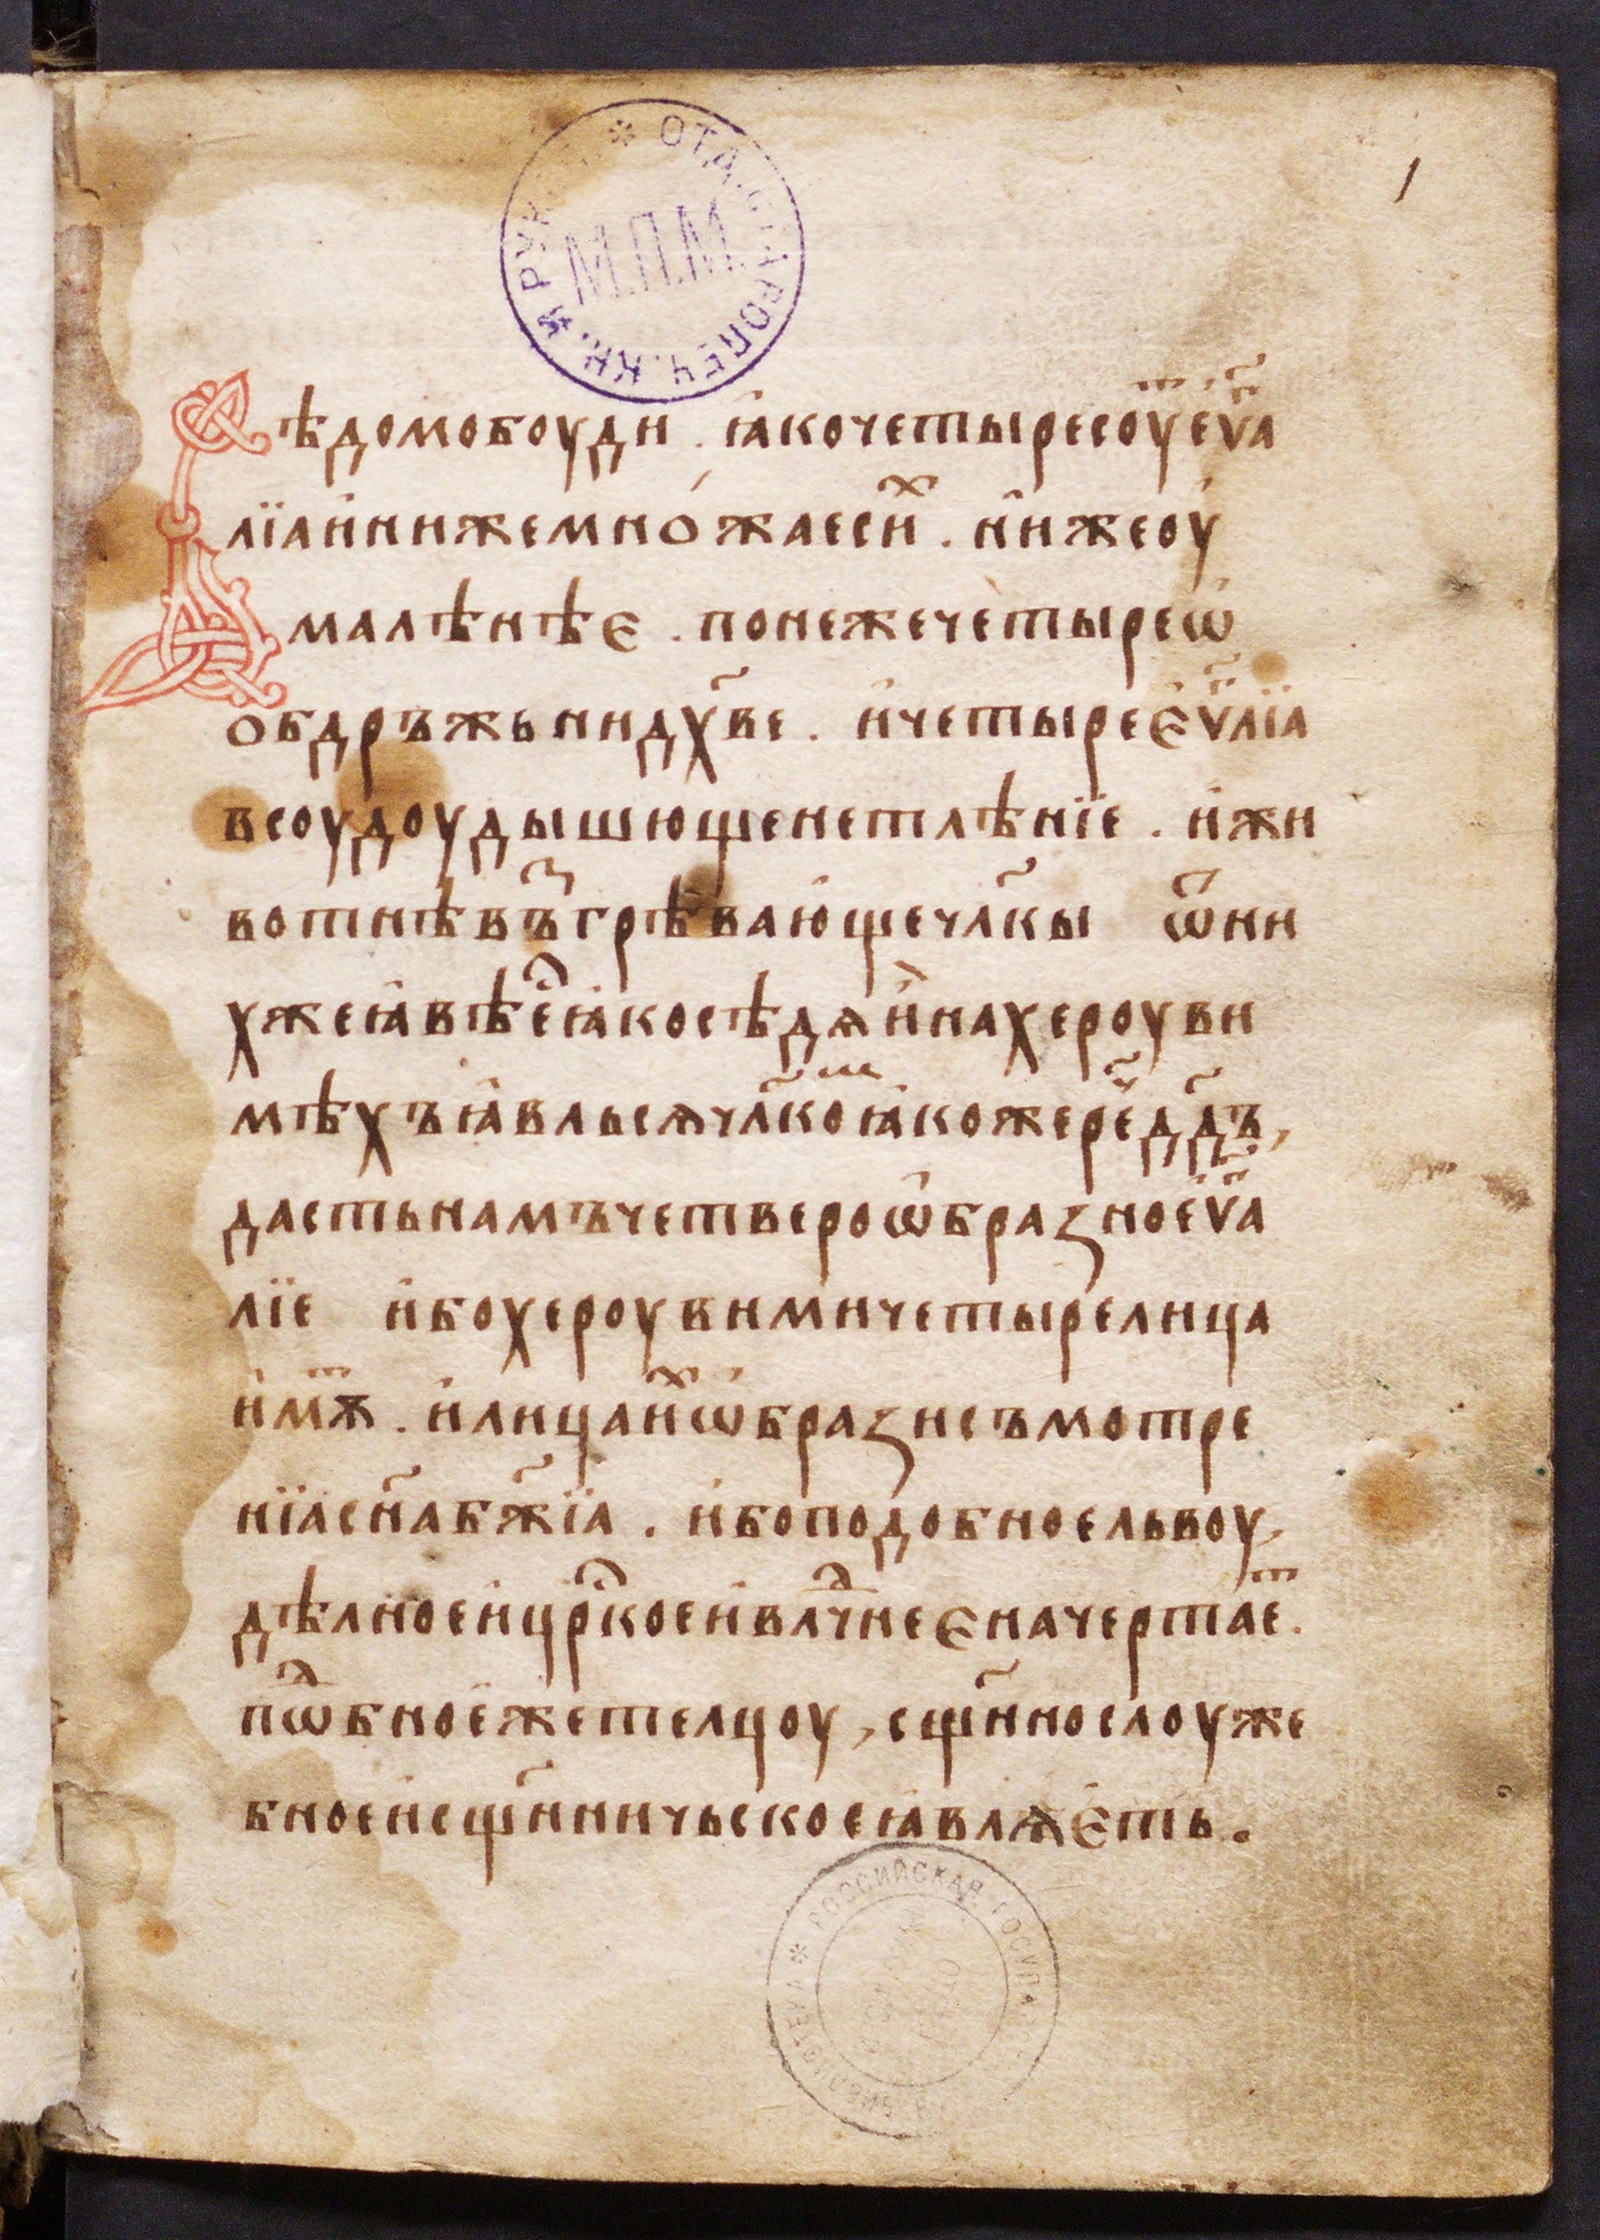 ОТД. СТАРОПЕЧ. КН. И РУК.
М.П.М.
1
Вѣдомобоуди . ꙗкочетыресоу҆тⷭ҇еѵⷢ҇а
лїаи҆нижемно́жаесиⷯ . и҆нижеоу
малѣнѣє . понежечетыреѡ
обдръжьнидꙋ҃ве . и҆четыреє҆ѵⷢ҇лїа
всоудоудышющенетлѣнїе . и҆жи
вотнѣвъⷥгрѣвающечл҃кы ѿни
хжеꙗвѣеⷭ҇ꙗкосѣдѧи҆нахероуви
мѣхъꙗвльсѧчл҃комⷨꙗкожереⷱ҇дв҃дъ,
дастьнамъчетвероѡ҆бразноеѵⷢ҇а
лїе и҆бохероувимичетырелица
и҆мⷮѫ . и҆лицаи҆ⷯѡ҆бразисъмотре
нїасн҃абж҃їа . и҆боподобноельвоу,
дѣлноеи҆црⷭ҇коеи҆влⷣчнеєначертаеⷮ.
пѡⷣбноежетелцоу, сщ҃нослоуже
бноеи҆сщ҃нничьскоеꙗвлѧє҆ть.
РОССИЙСКАЯ ГОСУДАРСТВ. БИБЛИОТЕКА